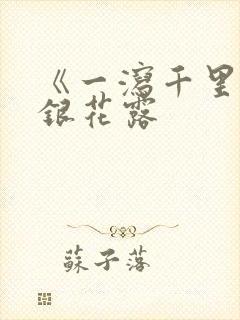 《一瀉千里
銀花露
蘇子落